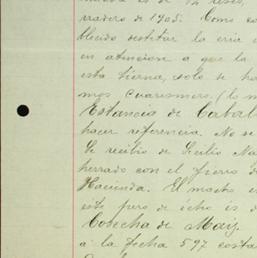 de 12 reses,
rradero de 1905. Como es
blecido destetar la cria e
en atencion a que la
esta tierna, solo se ha
mos Cuaresmeros, (lo m
Estancia de Cabal
hacer referencia. No se
Se recibio de Cecilio Na
herrado con el fierro d
Hacienda. El macho e
este pero de écho is d
Cosecha de Maiz
a la fecha 597 costa